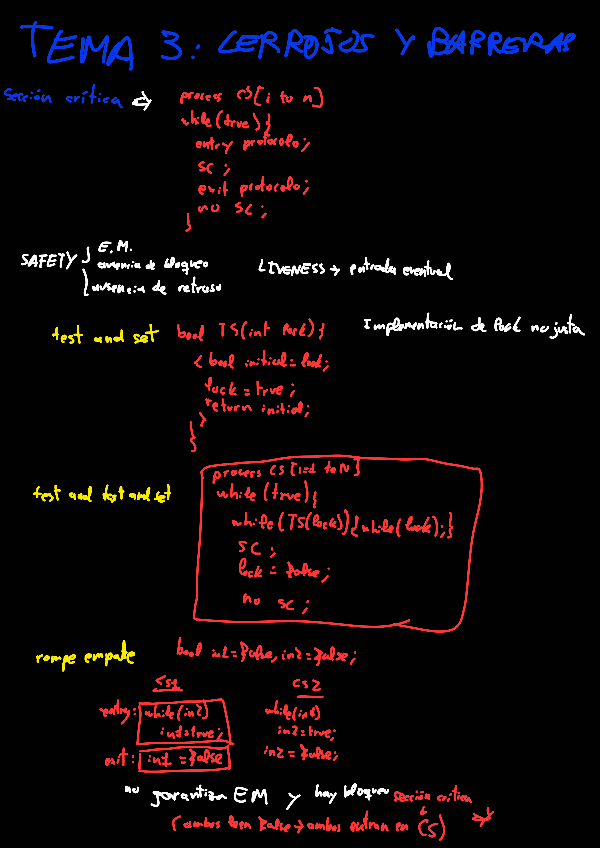 TEMA 3: CERROJOS Y BARRERAS
Sección crítica ⇒ process CS[i to n]
while(true){
entry protocolo;
SC;
exit protocolo;
no SC;
}
SAFETY { E.M.
ausencia de bloqueo
ausencia de retraso
LIVENESS → entrada eventual
test and set
bool TS(int lock){
Implementación de lock no justa
< bool initial = lock;
lock = true;
return initial;
>
}
test and test and set
process CS[i=1 to N]
while(true){
while(TS(lock)){while(lock);}
SC;
lock = false;
no SC;
rompe empate
bool in1=false, in2=false;
CS1 CS2
entry: while(in2) while(in1)
in1=true; in2=true;
exit: in1 = false in2 = false;
no garantiza EM y hay bloqueo sección crítica
(ambos leen false → ambos entran en CS)